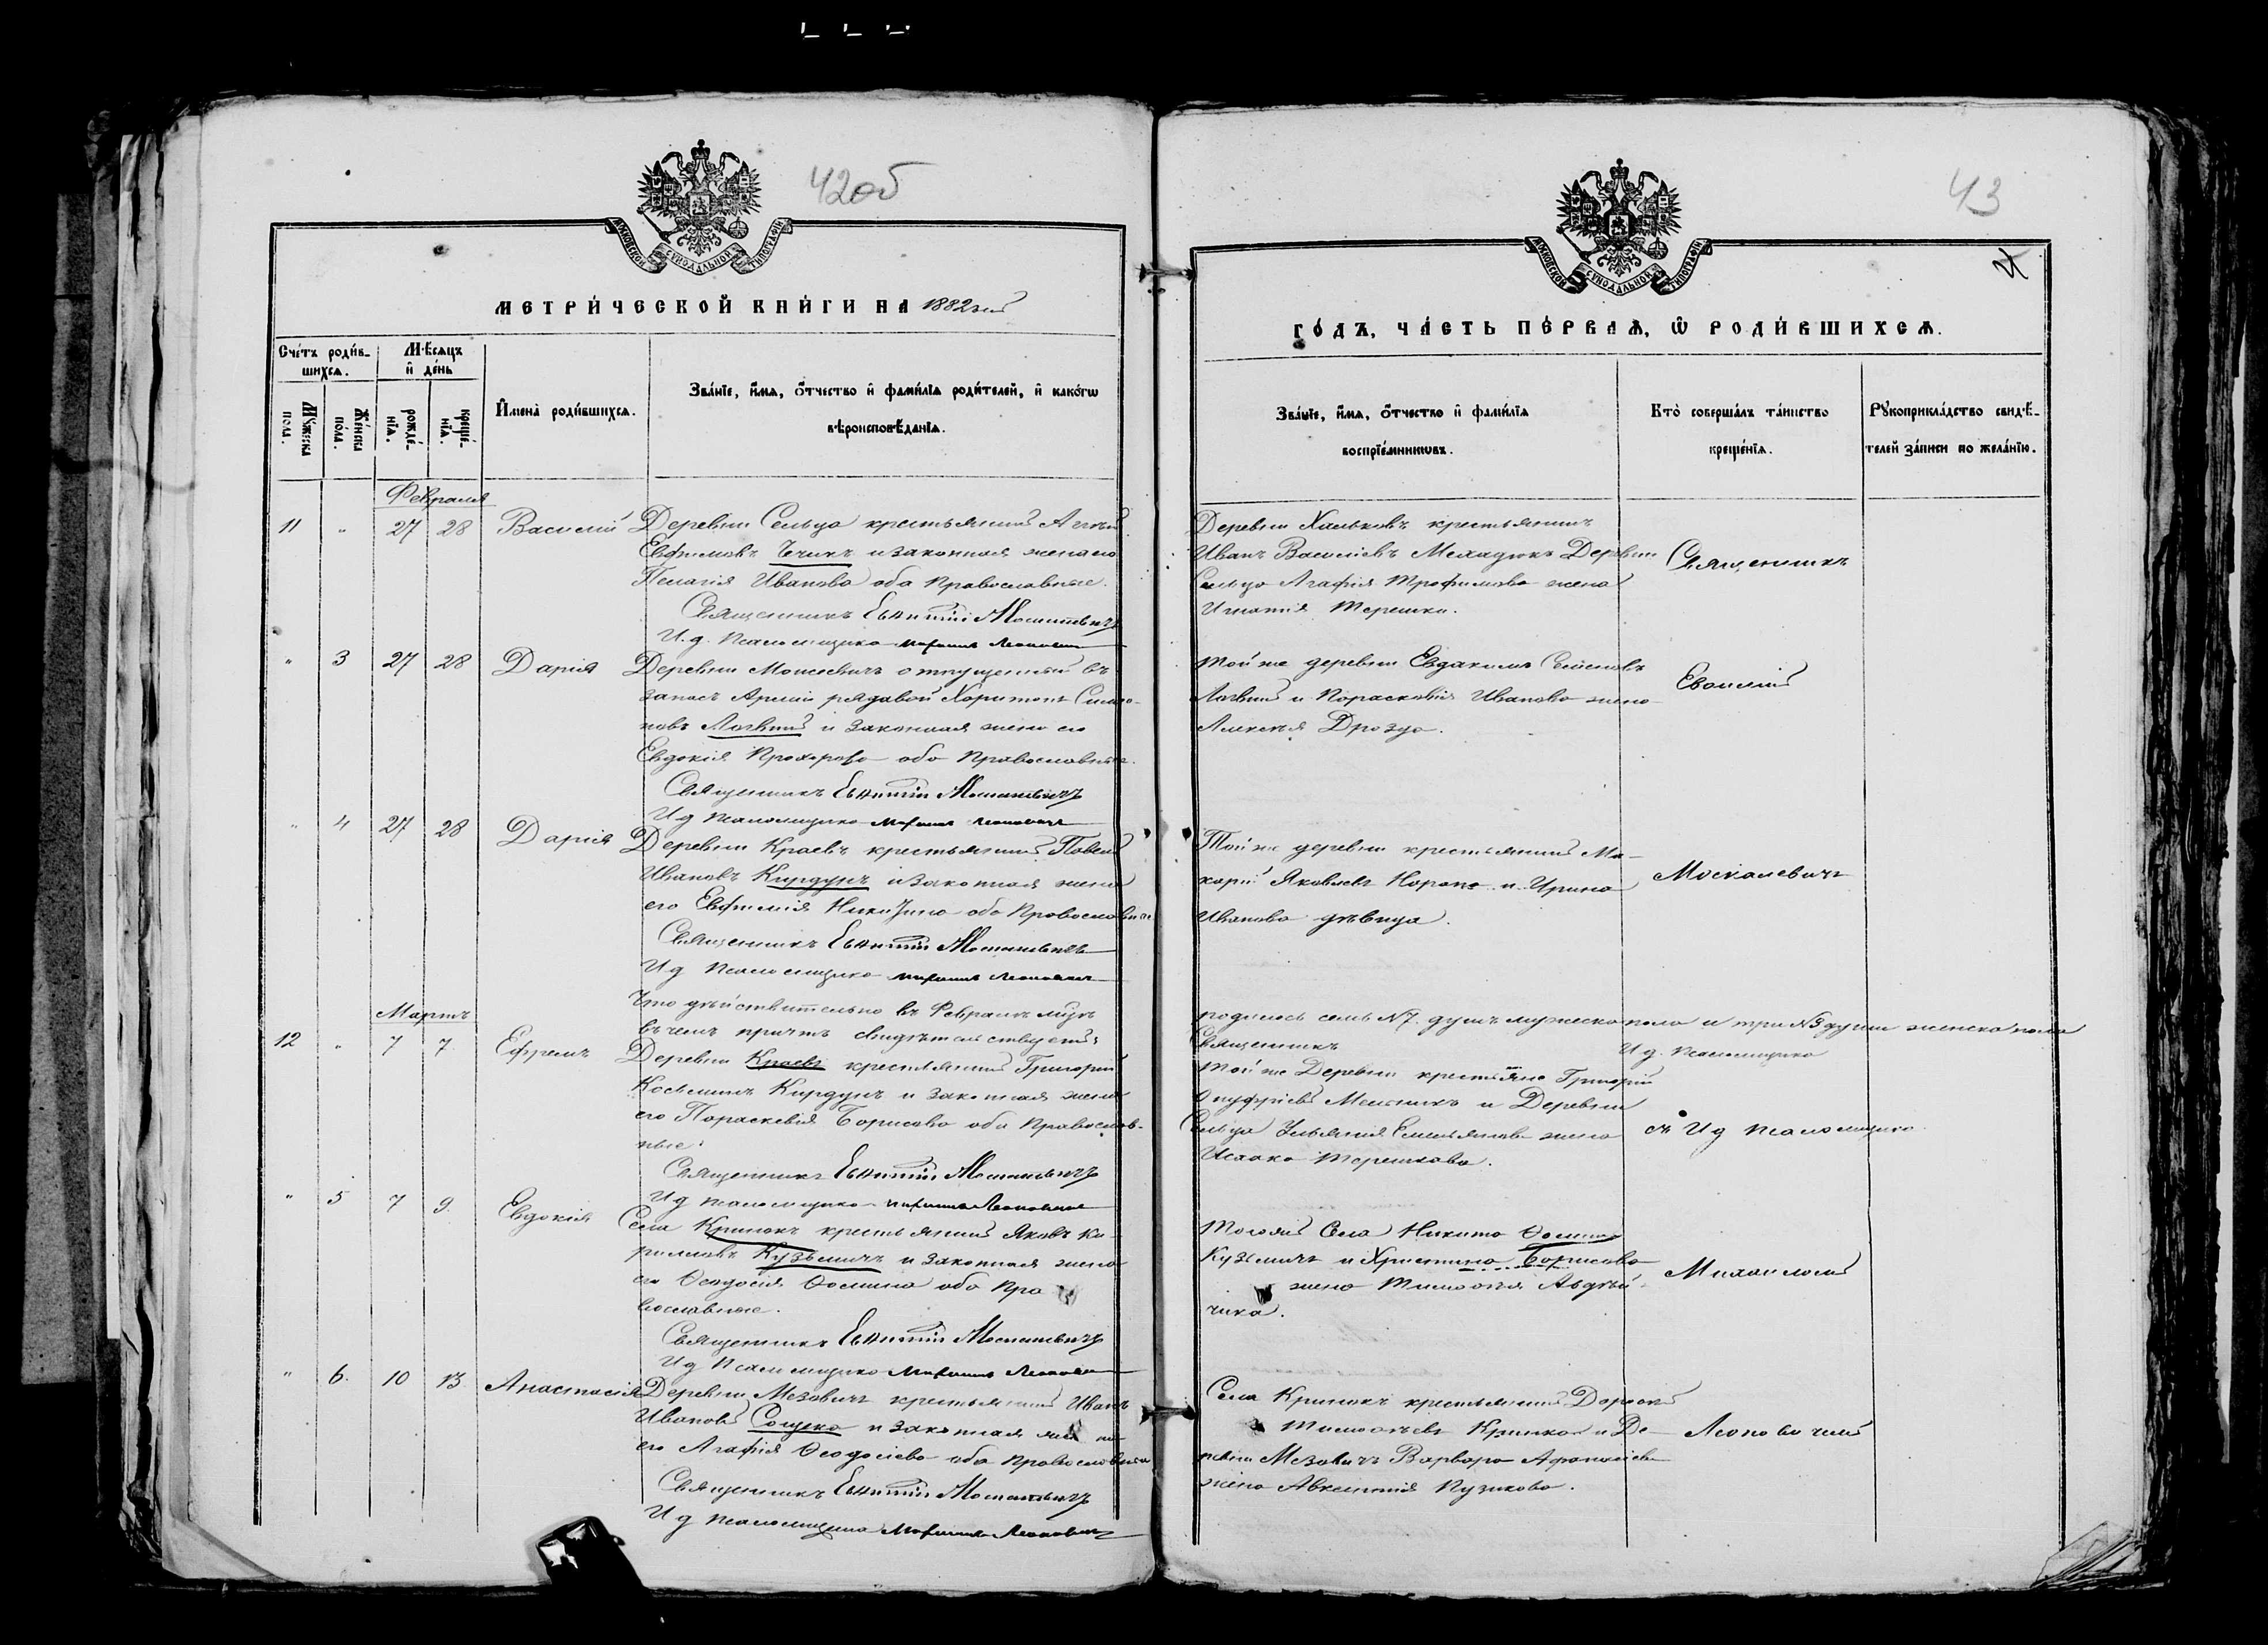 42об
МЕТРИ́ЧЕСКОЙ КНИ́ГИ НА 1882й
Сче́тъ роди́в-
шихсѧ.
Мѣ́сѧцъ
и҆ де́нь
Мꙋ́жеска
пола.
Же́нска
по́ла.
рожде́-
нїѧ.
креще́-
нїѧ.
И҆мена̀ роди́вшихсѧ.
Зва́нїе, и҆́мѧ, ѻ҆́тчество и҆ фами́лїѧ роди́телей, и҆ како́гѡ
вѣроисповѣ́данїѧ.
Февраля
11 " 27 28 Василій
Деревни Сельца крестьянинъ
Евфимовъ Чечикъ и законная жена его
Пелагія Иванова оба православные.
Священникъ Евфимій
И. д. Псаломщика Михаилъ Леонович
" 3 27 28 Дарія
Деревни Моисеевичъ отпущенный въ
запасъ Арміи рядовой Харитонъ Симо-
новъ Логвинъ и законная жена его
Евдокія Прохорова оба Православные.
Священникъ
И д Псаломщика Михаилъ Леоновичъ
" 4 27 28 Дарія
Деревни Краевъ крестьянинъ Павелъ
Ивановъ Кирдунъ и законная жена
его Евфимія Никитина оба Православные
Священникъ
И д Псаломщика Михаилъ Леоновичъ
Что дѣйствительно въ Февралѣ мцѣ
въ чемъ причтъ свидѣтельствуетъ
Мартъ
12 " 7 7 Ефремъ
Деревни Краевъ крестьянинъ Григорій
Косьминъ Кирдунъ и законная жена
его Параскевія Борисова оба Православ-
ные.
Священникъ
И д Псаломщика Михаилъ Леоновичъ
" 5 7 9. Евдокія
Села Кринокъ крестьянинъ Яковъ Ки-
рилловъ Кузьмичъ и законная жена
его Ѳеодосія Ѳомина оба Пра
вославные.
Священникъ
И д Псаломщика Михаилъ Леонович
" 6. 10 13. Анастасія
Деревни Мезовичъ крестьянинъ Иванъ
Ивановъ и законная жена
его Агафія Ѳеодосіева оба православныи
Священникъ
И д Псаломщика Михаилъ Леоновичъ
43
4
ГО́ДЪ, ЧА́СТЬ ПЕ́РВАѦ, Ѡ҆ РОДИ́ВШИХСѦ.
Зва́нїе, и҆́мѧ, ѻ҆́тчество и҆ фами́лїѧ
воспрїе́мникѡвъ.
Кто̀ соверша́лъ та́инство
креще́нїѧ.
Рꙋкоприкла́дство свидѣ́-
телей за́писи по жела́нїю.
Деревни Хальковъ крестьянинъ
Иванъ Василіевъ Деревни
Сельца Агафія Трофимова жена
Игнатія Терешки.
Священникъ
Той же деревни Евдакимъ Семеновъ
Логвинъ и Парасковія Иванова жена
Алексѣя Дрозда.
Евфимій
Той же деревни крестьянинъ Ма-
карій Яковлевъ и Ирина
Иванова дѣвица.
Москалевичъ
родилось семь №7 душъ мужеска пола и три №3 души женска пола
Священникъ
И д. Псаломщика
Той же Деревни крестьяне Григорій
Онуфріевъ Мельникъ и Деревни
Сельца Ульянія Емельянова жена
Исаака Терешкова.
съ И д Псаломщика
Тогожъ Села Никита Ѳоминъ
Кузьмичъ и Христина Борисова
жена Тимоѳея Авдѣй-
чика.
Михаиломъ
Села Кринокъ крестьянинъ Дороѳей
Тимоѳеевъ и Де-
ревни Мезовичъ Варвара Афанасіева
жена Авксентія Пузикова.
Леоновичемъ